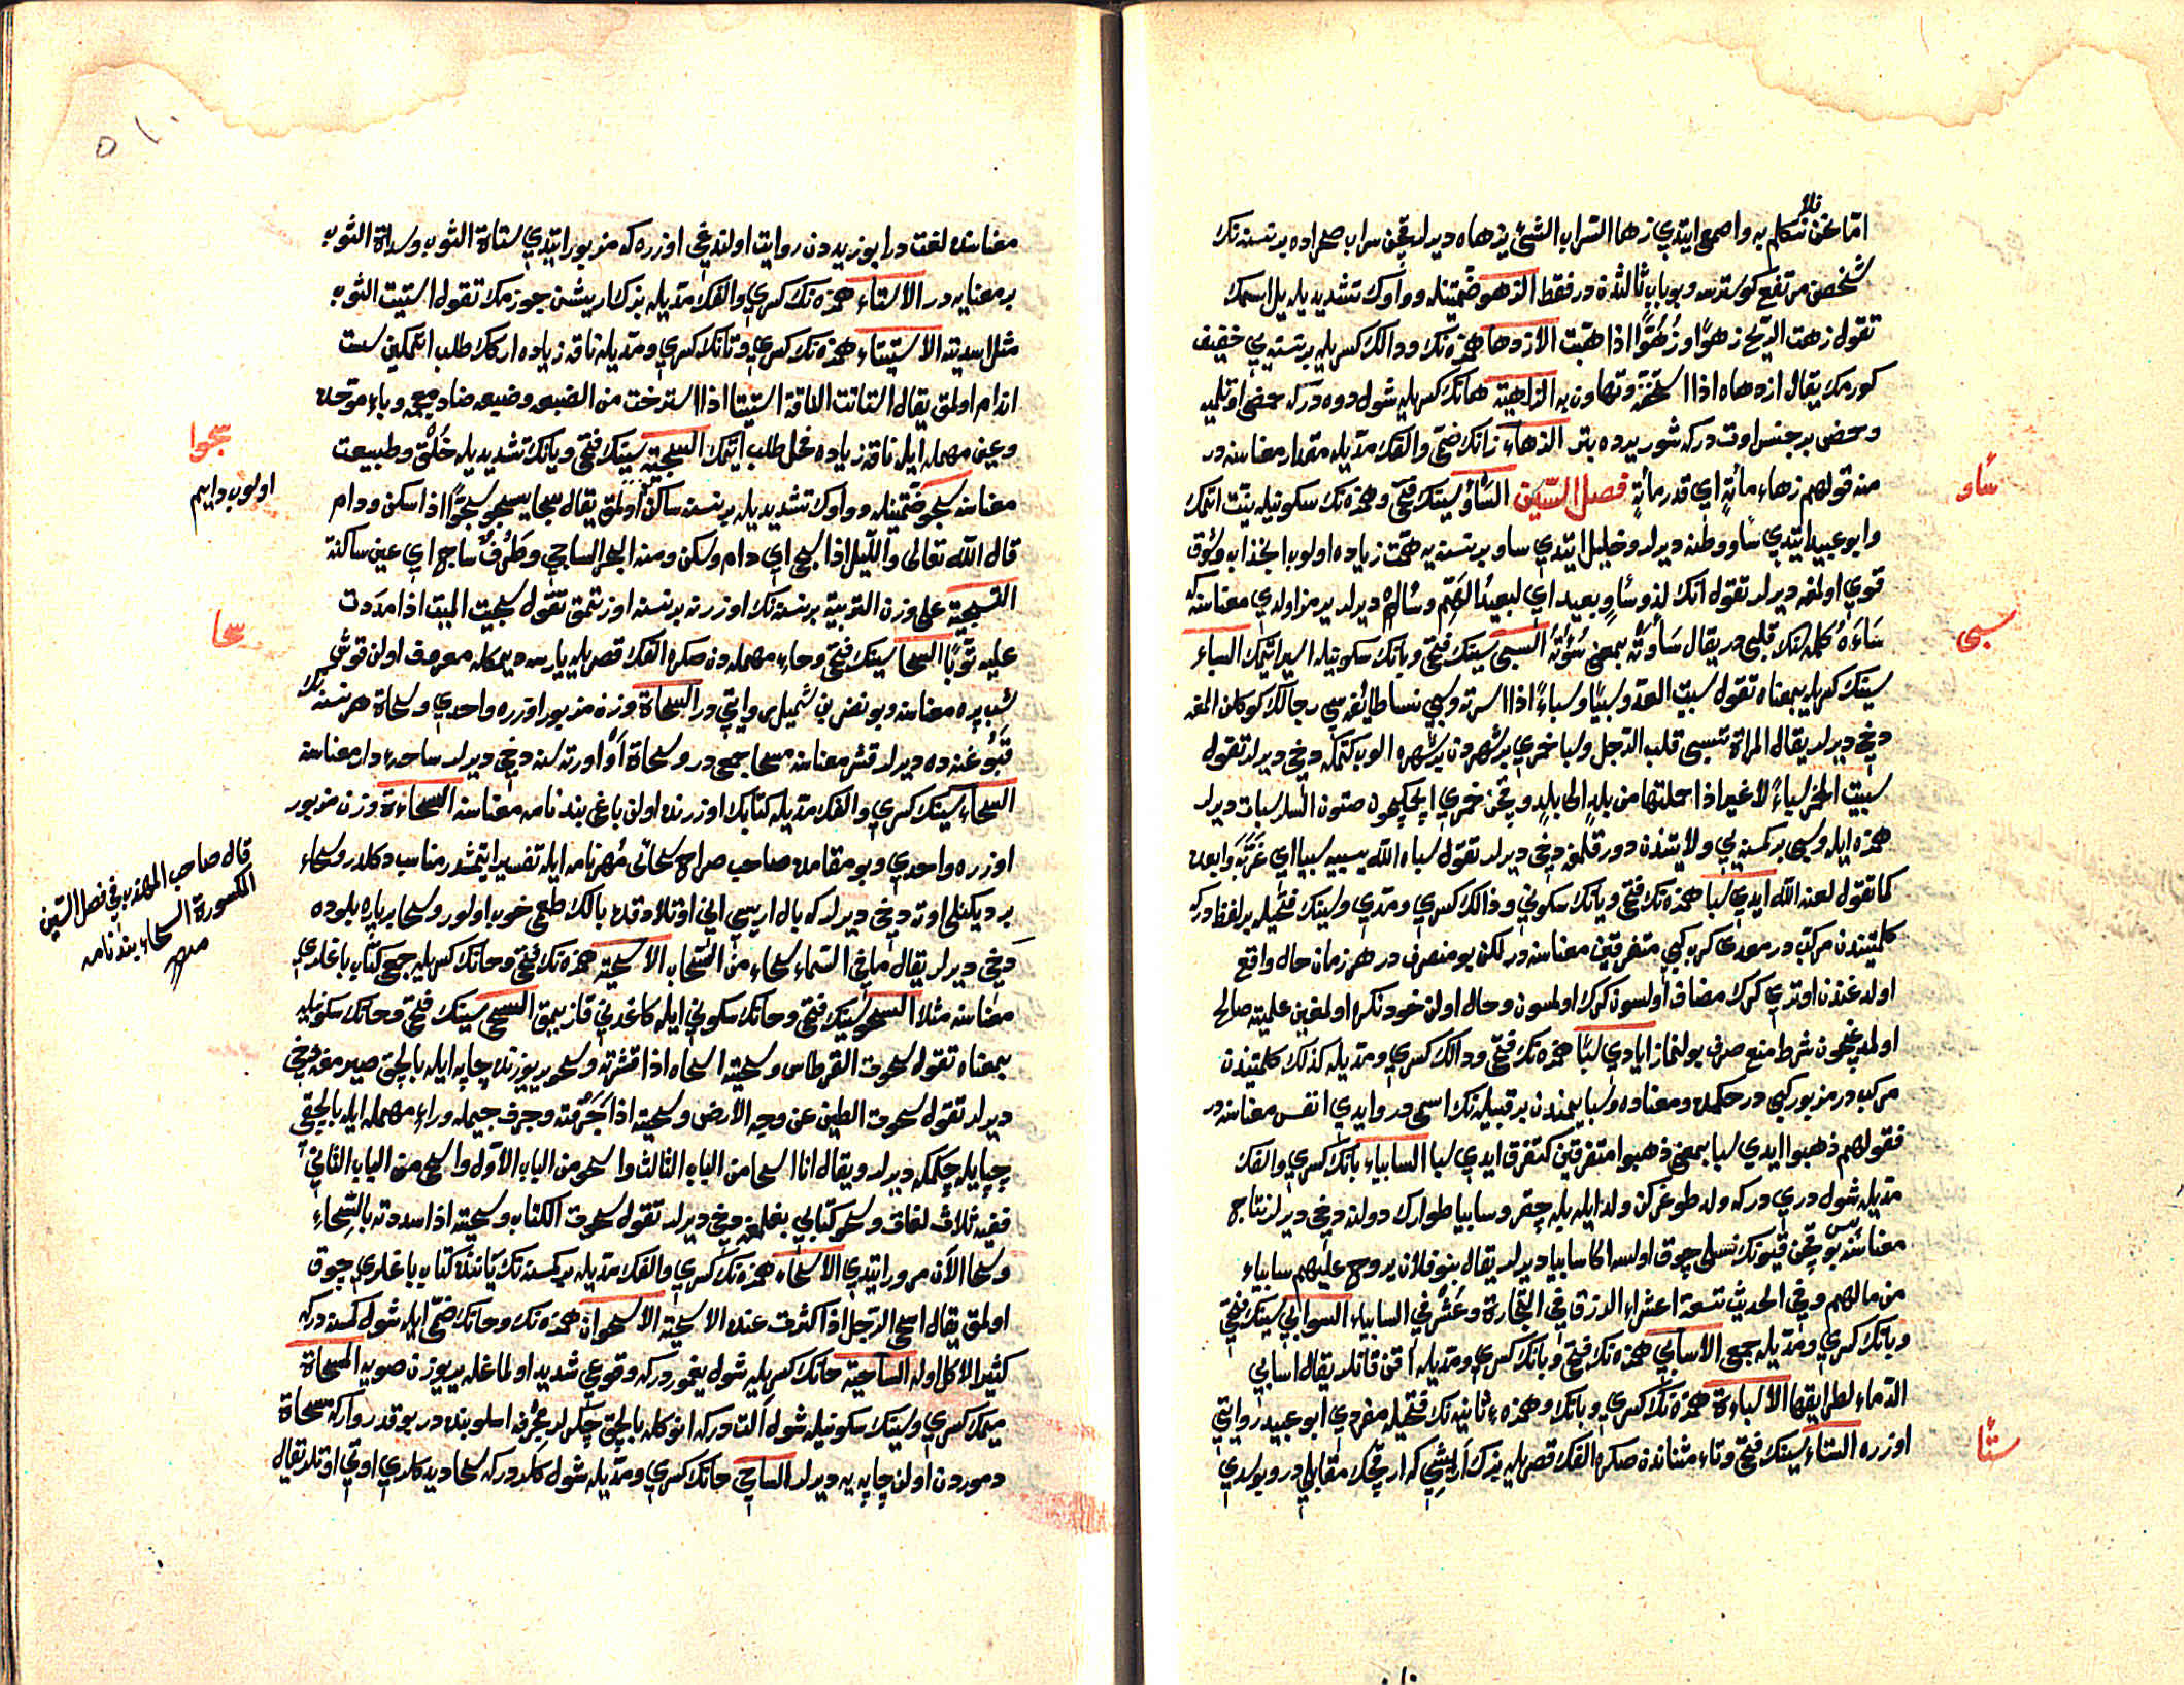 امّا نحن فلا نتكلم به واصمعى ايتدي زها السّراب الشئ يزهاه ديرلر قچن سراب صحراده بر نسنه نك
شخصن مرتفع كوسترسه وبو باب ثالثدن در فقط الزهو ضمّتينله وواوك تشديديله يل اسمك
تقول زهت الريح زهوًا وزُهُوًّا اذا هبّت الازدها همزه نك ودالك كسريله بر نسنه يي خفيف
كورمك يقال ازدهاه اذا استخفّه وتهاون به الزاهية هانك كسريله شول دوه دركه حمضى اوتلميه
وحمض بر جنس اوت دركه شور يرده بتر الزهاء زانك ضمّي والفك مدّيله مقدار معناسنه در
منه قولهم زهاء مائةٍ اي قدر مائةٍ فصل السّين السّأو سينك فتحي وهمزه نك سكونيله نيّت اتمك
وابو عبيد ايتدي سأو وطنه ديرلر وخليل ايتدي ساو بر نسنه يه همّت زياده اولوب انجذاب وشوق
قوي اولغه ديرلر تقول انك لذو سأوٍ بعيد اي لبعيدُ الهَمّ وسأاه ديرلر
سَاءَهُ كلمه سنك قلبي در يقال سَأَوْتُه بمعنى سُؤْتُه السبي سينك فتحي وبانك سكونيله اسير اتمك السباء
سينك كسريله بمعناه تقول سبيت العدوّ سبيًا وسباءً اذا اسرته وسبي نسا طائفه سي رجالك كوكلن المغه
دخي ديرلر يقال المراة تسبي قلب الرّجل وسبا خمري بر شهردن بر شهره الوب كتمكه دخي ديرلر تقول
سبيت الخمر سباءً لا غير اذا حملتها من بلدٍ الى بلدٍ وقچن خمري ايچمكچون صتون السلر سبات ديرلر
همزه ايله وسبي بر كمسنه يي ولايتندن دور قلمغه دخي ديرلر تقول سباه الله يسبيه سبيا اي غَرّبَه وابعده
كما تقول لعنه الله ايدي سبا همزه نك فتحي ويانك سكوني ودالك كسري ومدّي وسينك فتحيله بر لفظ دركه
كلمتيندن مركّب در معدي كرب كبي متفرقين معناسنه در لكن بو منصرف در هر زمان حال واقع
اولدغندن اوتري كرك مضاف اولسون كرك اولمسون وحال اولن خود نكره اولمغين علميته صالح
اولمدغيچون شرط منع صرف بولنماز ايادي سبا همزه نك فتحي ودالك كسري ومدّيله كذلك كلمتيندن
مركب در مزبور كبي در حكمده ومعناده وسبا يمندن بر قبيله نك اسمي در وايدي انفس معناسنه در
فقولهم ذهبوا ايدي سبا بمعنى ذهبوا متفرقين كتفرق ايدي سبا السابياء بانك كسري والفك
مدّيله شول دري دركه ولد طوغركن ولد ايله بيله چقر وسابيا طوارك دولنه دخي ديرلر نتاج
معناسنه پس قچن قيونك نسلى چوق اولسه اكا سابيا ديرلر يقال بنو فلان يروح عليهم سابياء
من مالهم وفي الحديث تسعة اعشراء الرزق في التجارة وعُشْر في السابياء السوابي سينك فتحي
وبانك كسري ومدّيله جمع الاسابي همزه نك فتحي وبانك كسري ومدّيله آقن قانلر يقال اسابي
الدّماء لطرايقها الاسباءة همزه نك كسري وبانك وهمزه ء ثانيه نك فتحيله مفردي ابو عبيد روايتي
اوزره الستاء سينك فتحي وتاء مثنّاتدن صكره الفك قصريله بزك اَرِيشي كه ارقچك مقابلي در وبو سدي
ساو
سبى
ستا
معناسنده لغت در ابو زيددن روايت اولندغي اوزره كه مزبور ايتدي ستاة الثوب وسداة الثوب
بر معنايه در الاستاء همزه نك كسري والفك مدّيله بزك اريشن جوزمك تقول استيت الثوب
مثل اسديته الاستيتاء همزه نك كسري وتانك كسري ومدّيله ناقه زياده اركك طلب اتمكدن سست
اندام اولمق يقال استاتت الناقة استيتا اذا استرخت من الضبعه وضبعه ضاد معجمه وباء موحّده
وعين مهمله ايله ناقه زياده فحل طلب ايتمك السجيّه سينك فتحي ويانك تشديديله خُلْق وطبيعت
معناسنه سجو ضمّتينله وواوك تشديديله بر نسنه ساكن اولمق يقال سجا يسجو سجوًّا اذا سكن ودام
قال الله تعالى والليل اذا سجى اي دام وسكن ومنه البحر الساجي وطَرْفٌ ساج اي عين ساكنة
التسجية على وزن التربية بر نسنه نك اوزرنه بر نسنه اورتمق تقول سجيت الميت اذا مدَدت
عليه ثوبًا السحا سينك فتحي وحاء مهمله دن صكره الفك قصريله يارسه ديمكله معروف اولن قوشى نك
شب پره معناسنه وبو نضر بن شميل روايتي در السحاة وزن مزبور اوزره واحدي وسحاة هر نسنه نك
قَبُوغنه ده ديرلر قشر معناسنه سحا جمعى در وسحاة اَو اورته سنه دخي ديرلر ساحهء دار معناسنه
السحاء سينك كسري والفك مدّيله كتابك اوزرنده اولن باغ بندنامه معناسنه السحاءة وزن مزبور
اوزره واحدي وبو مقامده صاحب صراح سحائى مُهرنامه ايله تفسير ايتمشدر مناسب دكلدر وسحاء
بر ديكنلى اوته دخي ديرلر كه بال اريسي انى اوتلادقده بالك طعمى خوب اولور وسحا بر پاره بلوده
دخي ديرلر يقال ما في السماء سحاء من السّحاب الاسحية همزه نك فتحي وحانك كسريله جمع كتاب باغلري
معناسنه مثلا السحو سينك فتحي وحانك سكوني ايله كاغدي قازيمق السحي سينك فتحي وحانك سكونيله
بمعناه تقول سحوت القرطاس وسحيته اسحاه اذا قشرته وسحو ير يوزندن چاپه ايله بالچق صيرمغه دخي
ديرلر تقول سحوت الطين عن وجه الارض وسحيته اذا جَرَفته وجرف جيمله وراء مهمله ايله بالچقى
چپا ايله چكمكه ديرلر ويقال انا اسحا من الباب الثالث واسحو من الباب الاوّل واسحى من الباب الثاني
ففيه ثلاث لغات وسحو كتابي بغلمغه دخي ديرلر تقول سحوت الكتاب وسحيته اذا سددته بالسّحاءِ
وسحا الآن مرور ايتدي الاسحاء همزه نك كسري والفك مدّيله بر كمسنه نك ياننده كتاب باغلري چوق
اولمق يقال اسحى الرّجل اذا كثرت عنده الاسحية الاسحوان همزه نك وحانك ضمّي ايله شول كمسنه دركه
كثير الاكل اوله الساحية حانك كسريله شول يغمور دركه وقوعى شديد اولماغله ير يوزن صويه المسحاة
ميمك كسري وسينك سكونيله شول آلت دركه انوكله بالچق چكرلر مجرفه اسلوبنده در بو قدر وار كه مسحاة
دموردن اولن چاپه يه ديرلر الساحي حانك كسري ومدّيله شول كلر دركه سحا ديدكلري اوتي اوتلر يقال
سجوا
اولوب دايم
سحا
قال صاحب المهذب في فصل السّين
المكسورة السحاء بندنامه